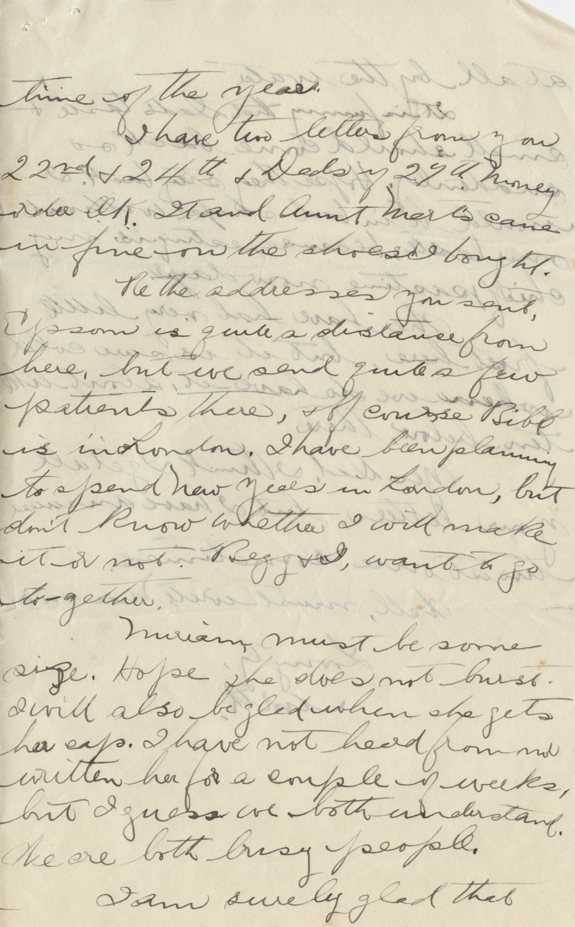 time of the year.
I have two letters from you
22nd & 24th & Dads of 27th Money
order OK. It and Aunt Mert's came
in fine on the shoes I bought.
Re the addresses you sent,
Epsom is quite a distance from
here, but we send quite a few
patients there, & of course Bibl
is in London. I have been planning
to spend New Years in London, but
don't know whether I will make
it or not. Begg & I, want to go
to-gether.
Miriam, must be some
size. Hope she does not burst.
I will also be glad when she gets
her cap. I have not heard from nor
written her for a couple of weeks,
but I guess we both understand.
We are both busy people.
I am surely glad that